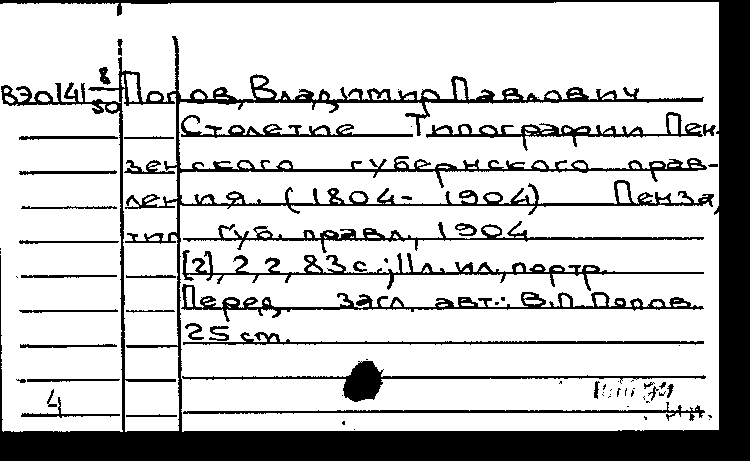 ВЭО|4| 8/50 Попов, Владимир Павлович
Столетие Типографии Пен-
зенского губернского прав-
ления. (1804- 1904) Пенза,
тип Губ. правл., 1904
[2], 2, 2, 83 с.; 11 л. ил., портр.
Перед загл. авт.: В.П. Попов.
25 cm.
4